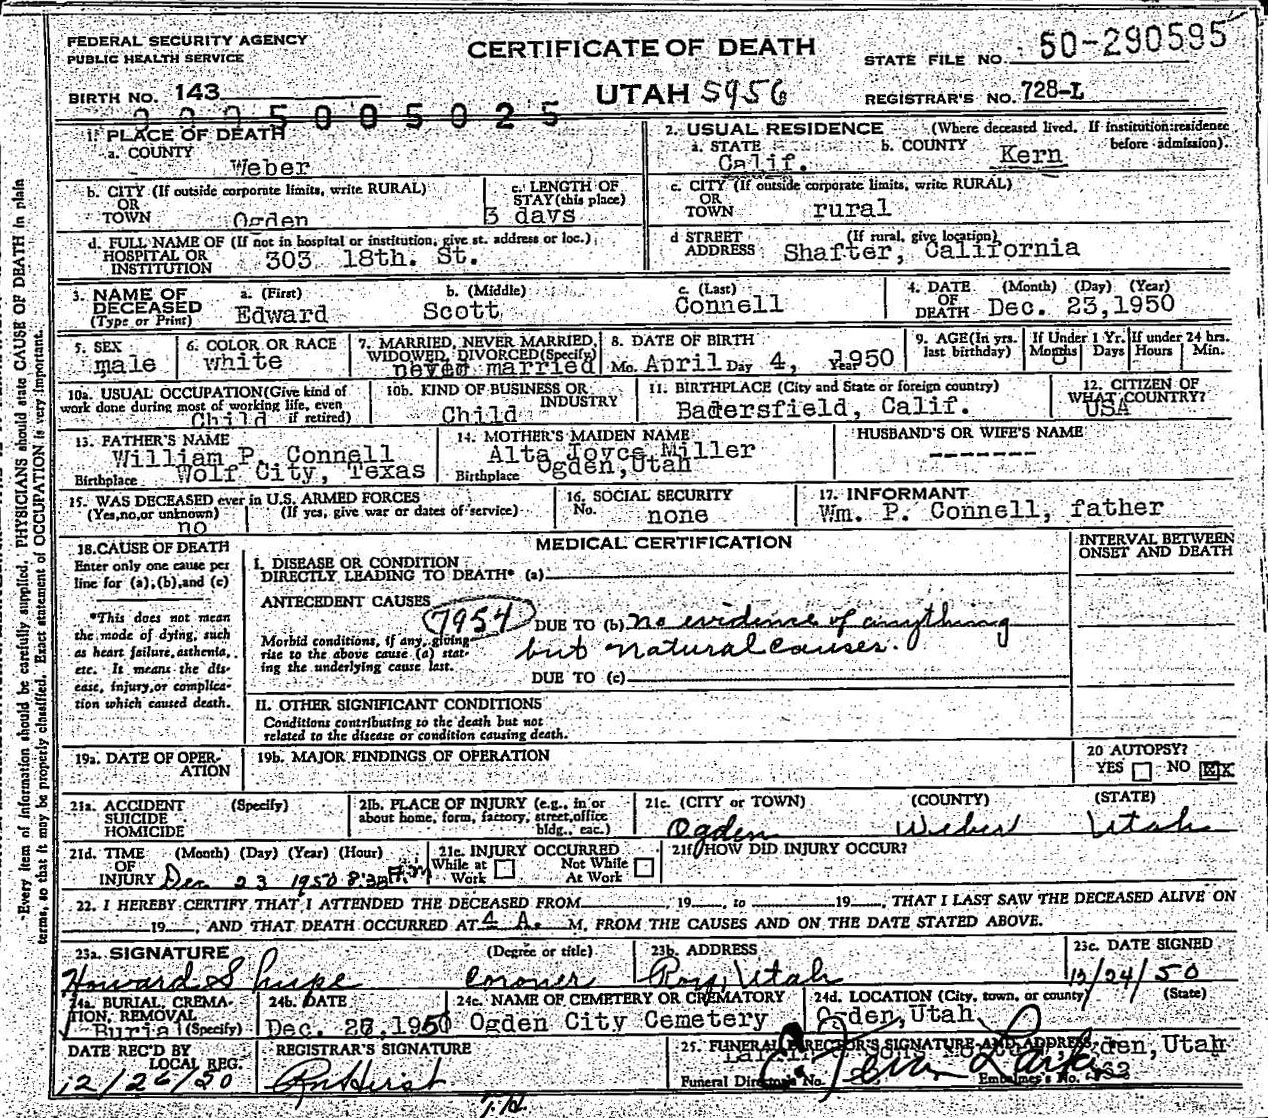 FEDERAL SECURITY AGENCY
PUBLIC HEALTH SERVICE
CERTIFICATE OF DEATH
STATE FILE NO. 50-290595
BIRTH NO. 143
UTAH 5956
REGISTRAR'S NO. 728-L
005005025
1. PLACE OF DEATH
a. COUNTY
Weber
2. USUAL RESIDENCE (Where deceased lived. If institution: residence before admission).
a. STATE Calif. b. COUNTY Kern
b. CITY (If outside corporate limits, write RURAL)
OR
TOWN Ogden
c. LENGTH OF
STAY (this place)
3 days
c. CITY (If outside corporate limits, write RURAL)
OR
TOWN rural
d. FULL NAME OF (If not in hospital or institution, give st. address or loc.)
HOSPITAL OR
INSTITUTION 303 18th. St.
d STREET (If rural, give location)
ADDRESS Shafter, California
3. NAME OF
DECEASED
(Type or Print)
a. (First) b. (Middle) c. (Last)
Edward Scott Connell
4. DATE (Month) (Day) (Year)
OF
DEATH Dec. 23, 1950
5. SEX
male
6. COLOR OR RACE
white
7. MARRIED, NEVER MARRIED,
WIDOWED, DIVORCED (Specify)
never married
8. DATE OF BIRTH
Mo. April Day 4, Year 1950
9. AGE (In yrs.
last birthday)
If Under 1 Yr.
Months Days
8
If under 24 hrs.
Hours Min.
10a. USUAL OCCUPATION (Give kind of
work done during most of working life, even
if retired)
Child
10b. KIND OF BUSINESS OR
INDUSTRY
Child
11. BIRTHPLACE (City and State or foreign country)
Bakersfield, Calif.
12. CITIZEN OF
WHAT COUNTRY?
USA
13. FATHER'S NAME
William P. Connell
Birthplace Wolf City, Texas
14. MOTHER'S MAIDEN NAME
Alta Joyce Miller
Birthplace Ogden, Utah
HUSBAND'S OR WIFE'S NAME
-------
15. WAS DECEASED ever in U.S. ARMED FORCES
(Yes, no, or unknown) (If yes, give war or dates of service)
no
16. SOCIAL SECURITY
No. none
17. INFORMANT
Wm. P. Connell, father
18. CAUSE OF DEATH
Enter only one cause per
line for (a), (b), and (c)
*This does not mean
the mode of dying, such
as heart failure, asthenia,
etc. It means the dis-
ease, injury, or complica-
tion which caused death.
MEDICAL CERTIFICATION
INTERVAL BETWEEN
ONSET AND DEATH
I. DISEASE OR CONDITION
DIRECTLY LEADING TO DEATH* (a)
ANTECEDENT CAUSES
7954
DUE TO (b) no evidence of anything
but natural causes.
Morbid conditions, if any, giving
rise to the above cause (a) stat-
ing the underlying cause last.
DUE TO (c)
II. OTHER SIGNIFICANT CONDITIONS
Conditions contributing to the death but not
related to the disease or condition causing death.
19a. DATE OF OPER-
ATION
19b. MAJOR FINDINGS OF OPERATION
20 AUTOPSY?
YES NO X
21a. ACCIDENT (Specify)
SUICIDE
HOMICIDE
21b. PLACE OF INJURY (e.g., in or
about home, form, factory, street, office
bldg., eac.)
21c. (CITY or TOWN) (COUNTY) (STATE)
Ogden Weber Utah
21d. TIME (Month) (Day) (Year) (Hour)
OF
INJURY Dec 23 1950 8:30 A.M
21e. INJURY OCCURRED
While at
Work
Not While
At Work
21f HOW DID INJURY OCCUR?
22. I HEREBY CERTIFY THAT I ATTENDED THE DECEASED FROM , 19 , to 19 , THAT I LAST SAW THE DECEASED ALIVE ON
19 , AND THAT DEATH OCCURRED AT 4 A. M. FROM THE CAUSES AND ON THE DATE STATED ABOVE.
23a. SIGNATURE (Degree or title)
Howard Shupe coroner
23b. ADDRESS
Roy, Utah
23c. DATE SIGNED
12/24/50
24a. BURIAL, CREMA-
TION, REMOVAL
Burial (Specify)
24b. DATE
Dec. 26, 1950
24c. NAME OF CEMETERY OR CREMATORY
Ogden City Cemetery
24d. LOCATION (City, town, or county) (State)
Ogden, Utah
DATE REC'D BY
LOCAL REG.
12/26/50
REGISTRAR'S SIGNATURE
25. FUNERAL DIRECTOR'S SIGNATURE AND ADDRESS
Ogden, Utah
Funeral Director's No. Embalmer's No.
"Every item of information should be carefully supplied. PHYSICIANS should state CAUSE OF DEATH in plain
terms, so that it may be properly classified. Exact statement of OCCUPATION is very important.